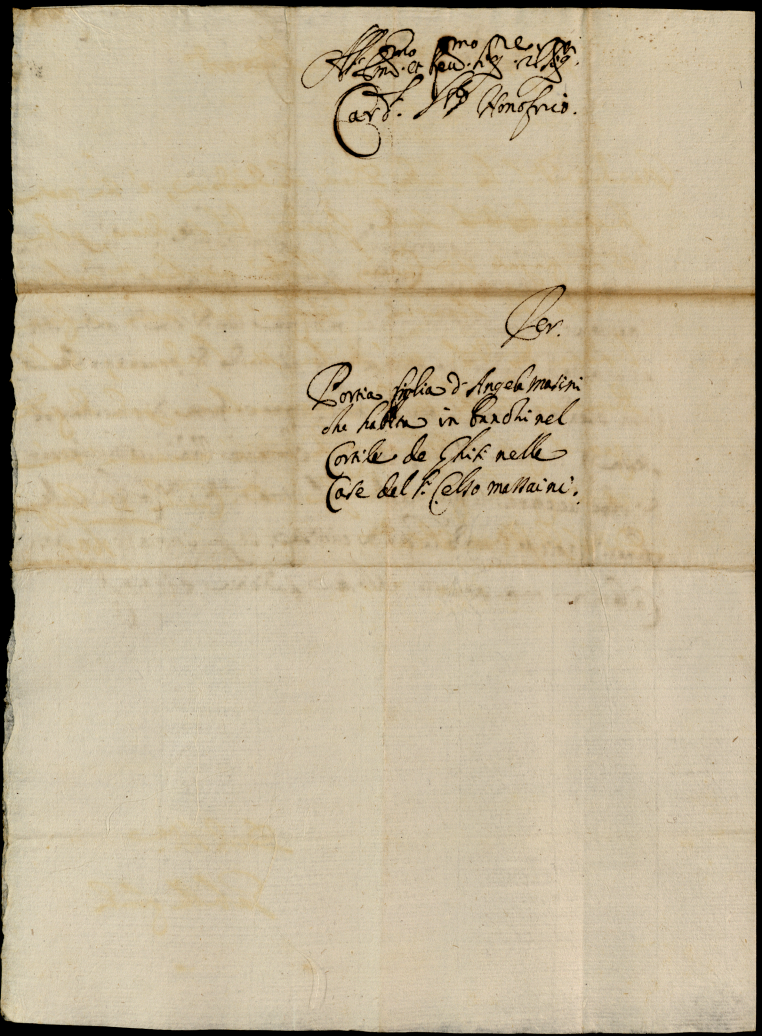 All' Em.mo et Reu.mo Sig.re il Sig.
Card.l S.to Honofrio.
Per.
Portia figlia d' Angela Masini
che habita in banchi nel
Cortile de Ghisi nelle
Case del S.r Celso massaini.